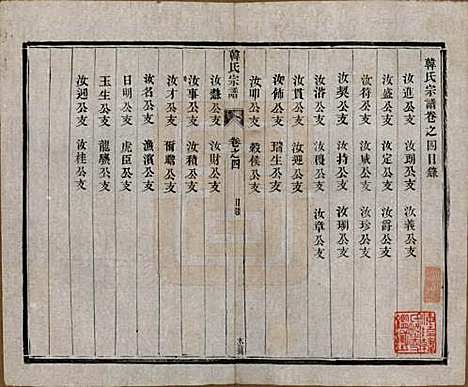 韓氏宗譜卷之四目錄
汝進公支　汝珝公支　汝義公支
汝盛公支　汝定公支　汝爵公支
汝符公支　汝咸公支　汝珍公支
汝契公支　汝持公支　汝瑚公支
汝潛公支　汝穫公支　汝章公支
汝貫公支　汝迎公支
汝佈公支　瑞生公支
汝叩公支　毅侯公支
韓氏宗譜　卷之四　目錄
汝懋公支　汝財公支
汝事公支　汝積公支
汝才公支　爾瞻公支
汝名公支　漁濱公支
日明公支　虎臣公支
玉生公支　龍驤公支
汝週公支　汝桂公支